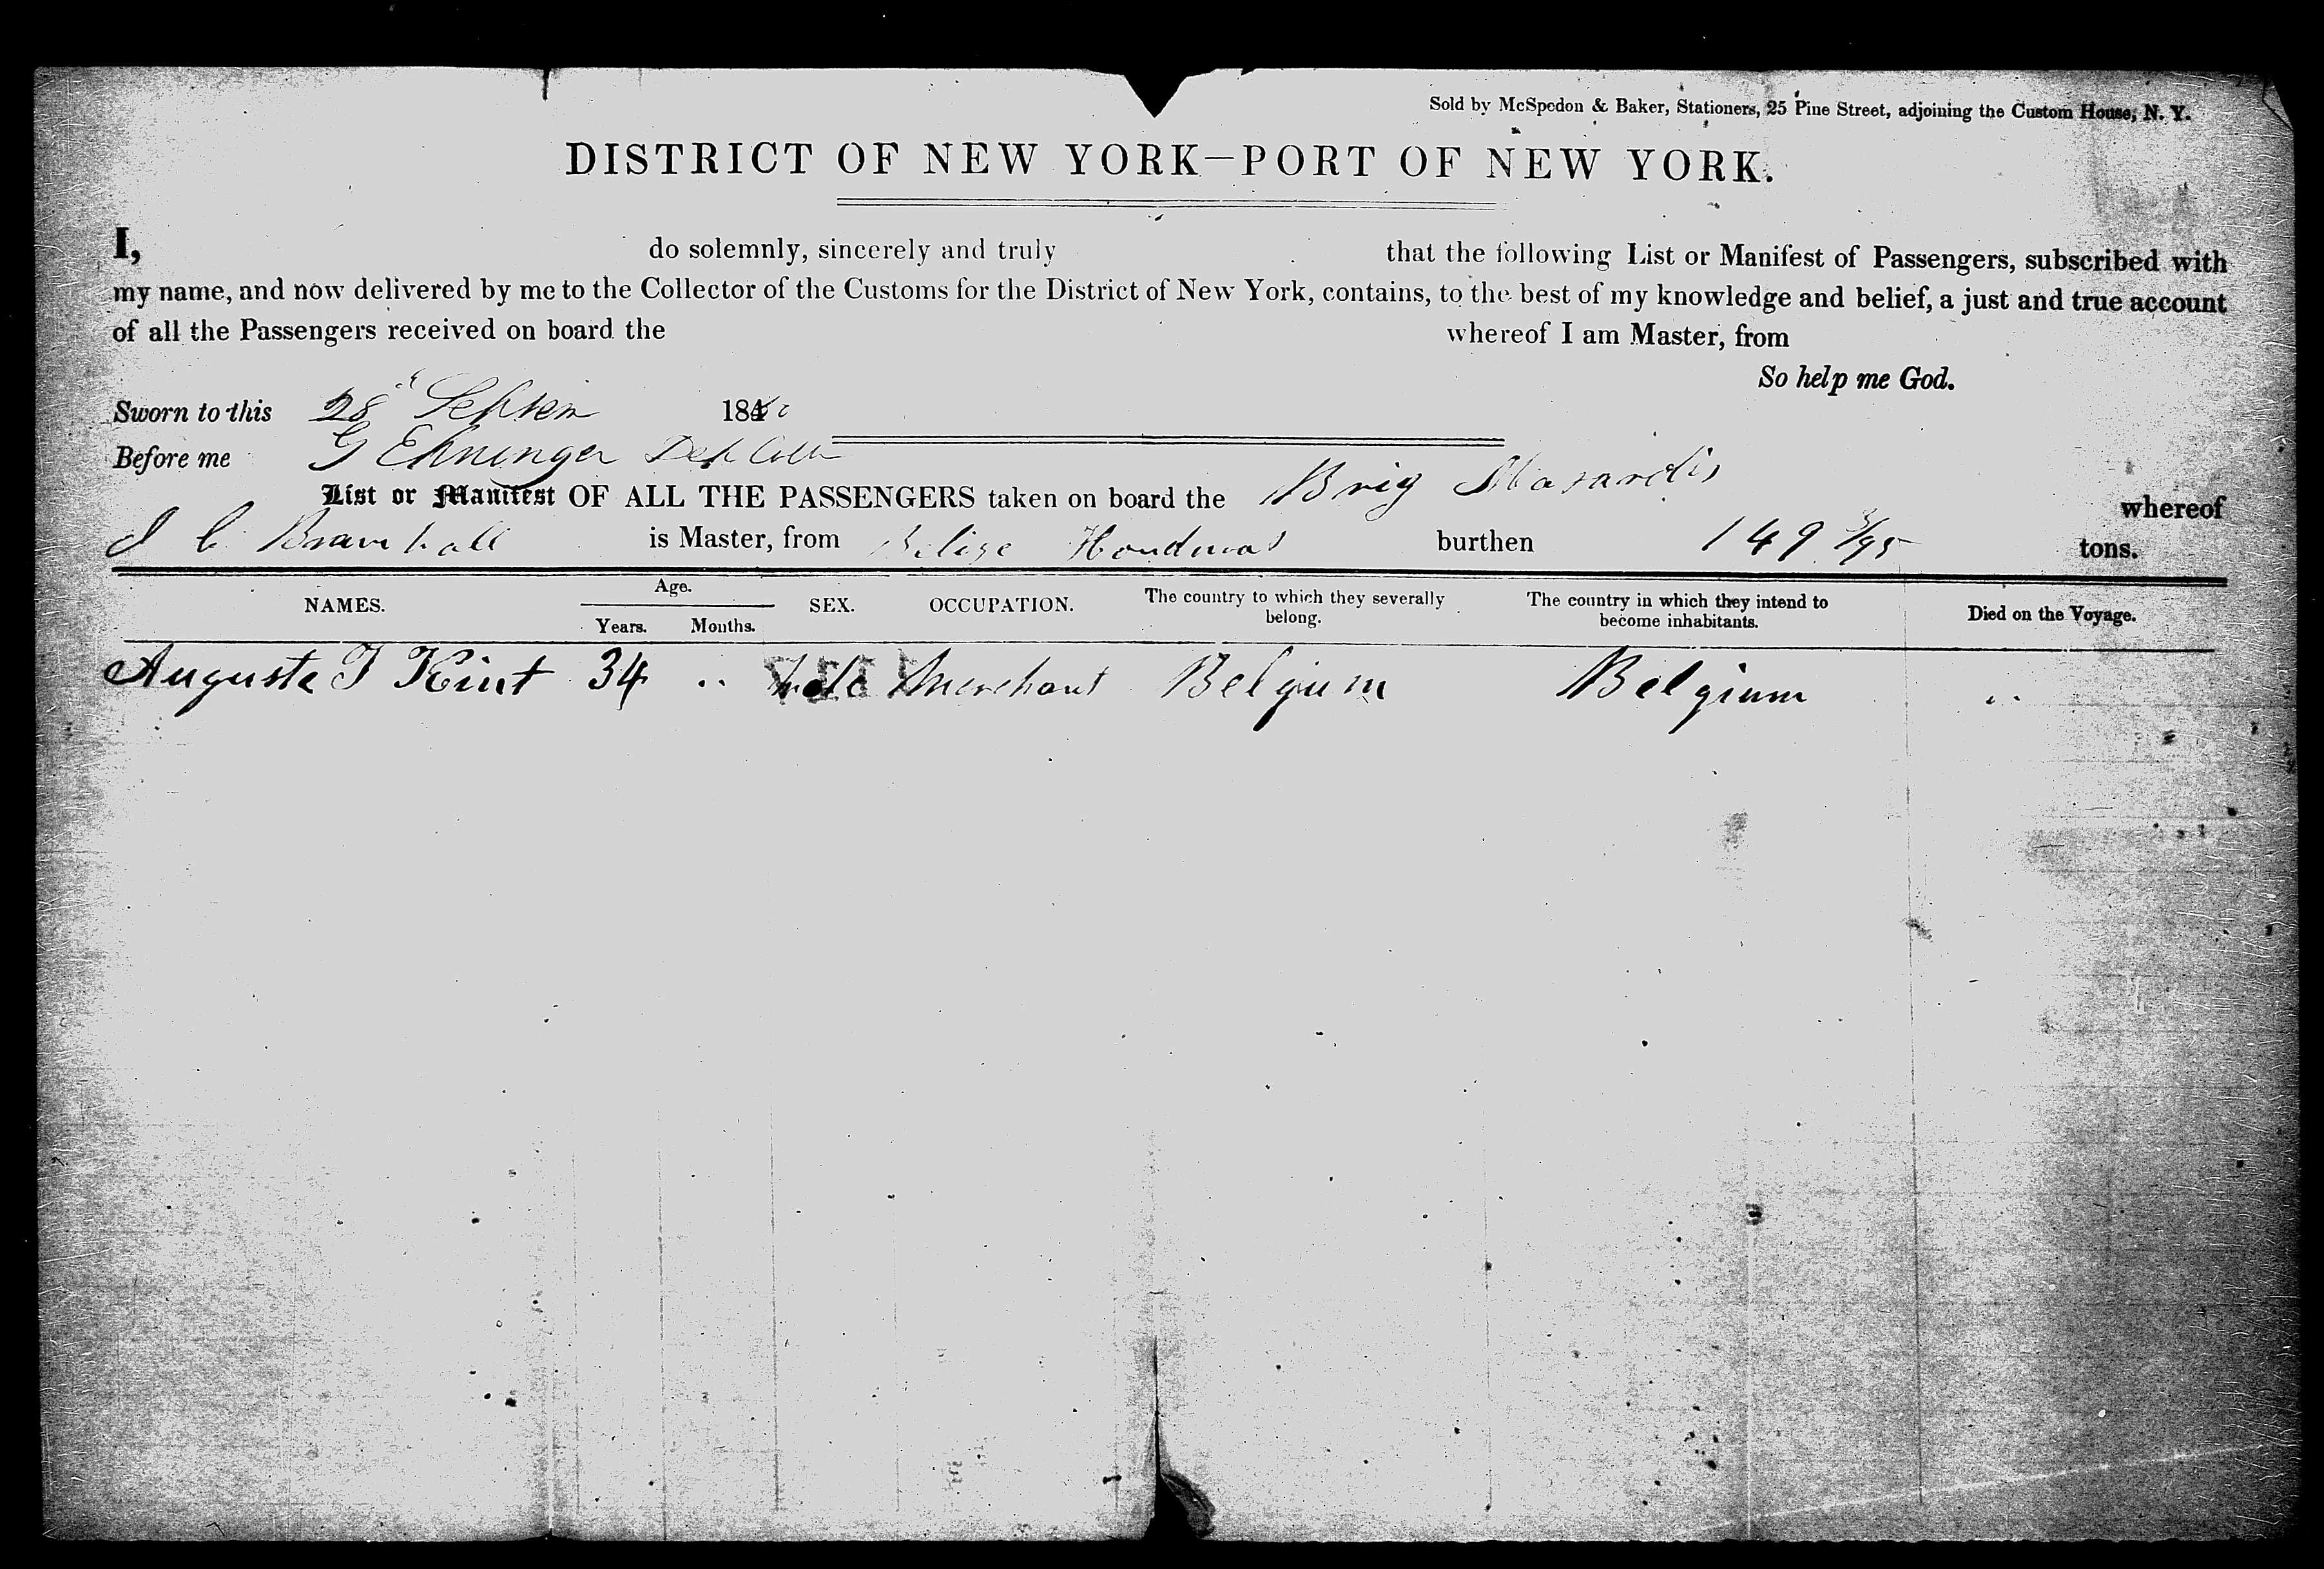 Sold by McSpedon & Baker, Stationers, 25 Pine Street, adjoining the Custom House, N. Y.
DISTRICT OF NEW YORK—PORT OF NEW YORK.
I, do solemnly, sincerely and truly that the following List or Manifest of Passengers, subscribed with
my name, and now delivered by me to the Collector of the Customs for the District of New York, contains, to the best of my knowledge and belief, a just and true account
of all the Passengers received on board the whereof I am Master, from
So help me God.
Sworn to this 28 184
Before me G Ehninger Dep Coll
List or Manifest OF ALL THE PASSENGERS taken on board the Brig Masardis whereof
J C Bramhall is Master, from Belize Honduras burthen 149 3/95 tons.
NAMES. Age. SEX. OCCUPATION. The country to which they severally The country in which they intend to Died on the Voyage.
Years. Months. belong. become inhabitants.
Auguste T Kint 34 .. Male Merchant Belgium Belgium ..